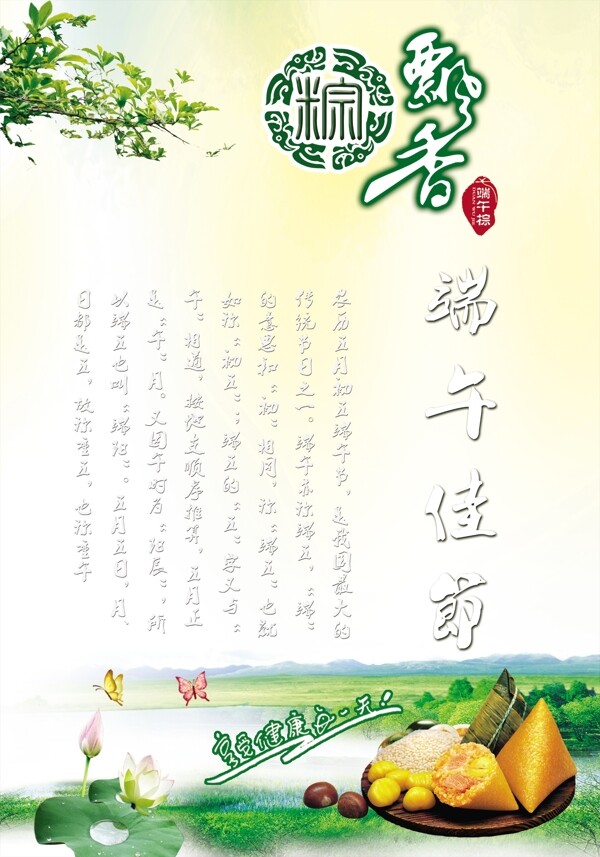 粽
飘香
端午粽
端午佳節
农历五月初五端午节，是我国最大的
传统节日之一。端午亦称端五，“端”
的意思和“初”相同，称“端五”也就
如称“初五”；端五的“五”字又与“
午”相通，按地支顺序推算，五月正
是“午”月。又因午时为“阳辰”，所
以端五也叫“端阳”。五月五日，月、
日都是五，故称重五，也称重午
享受健康每一天！